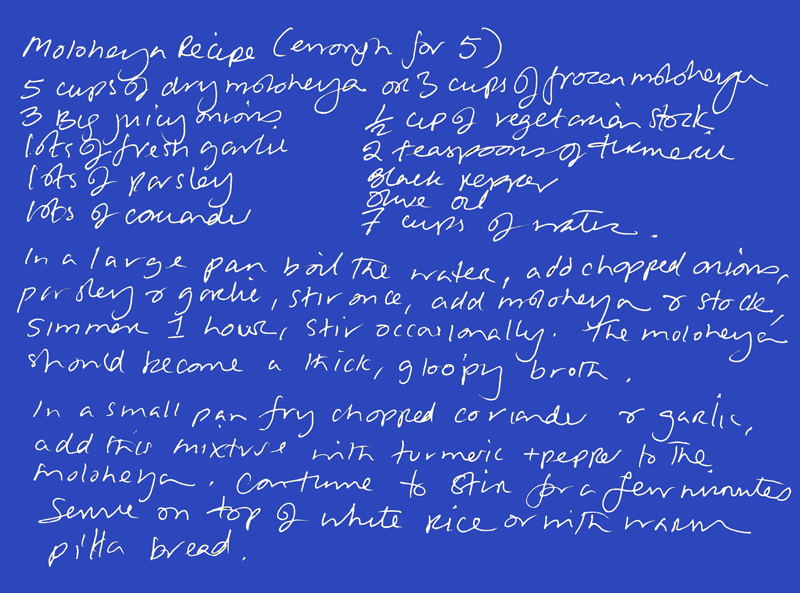 Moloheya Recipe (enough for 5)
5 cups of dry moloheya or 3 cups of frozen moloheya
3 Big juicy onions
lots of fresh garlic
lots of parsley
lots of coriander
1/2 cup of vegetarian stock
2 teaspoons of turmeric
Black pepper
Olive oil
7 cups of water.
In a large pan boil the water, add chopped onions,
parsley & garlic, stir once, add moloheya & stock,
simmer 1 hour, stir occasionally. The moloheya
should become a thick, gloopy broth.
In a small pan fry chopped coriander & garlic,
add this mixture with turmeric + pepper to the
moloheya. Continue to stir for a few minutes
Serve on top of white rice or with warm
pitta bread.